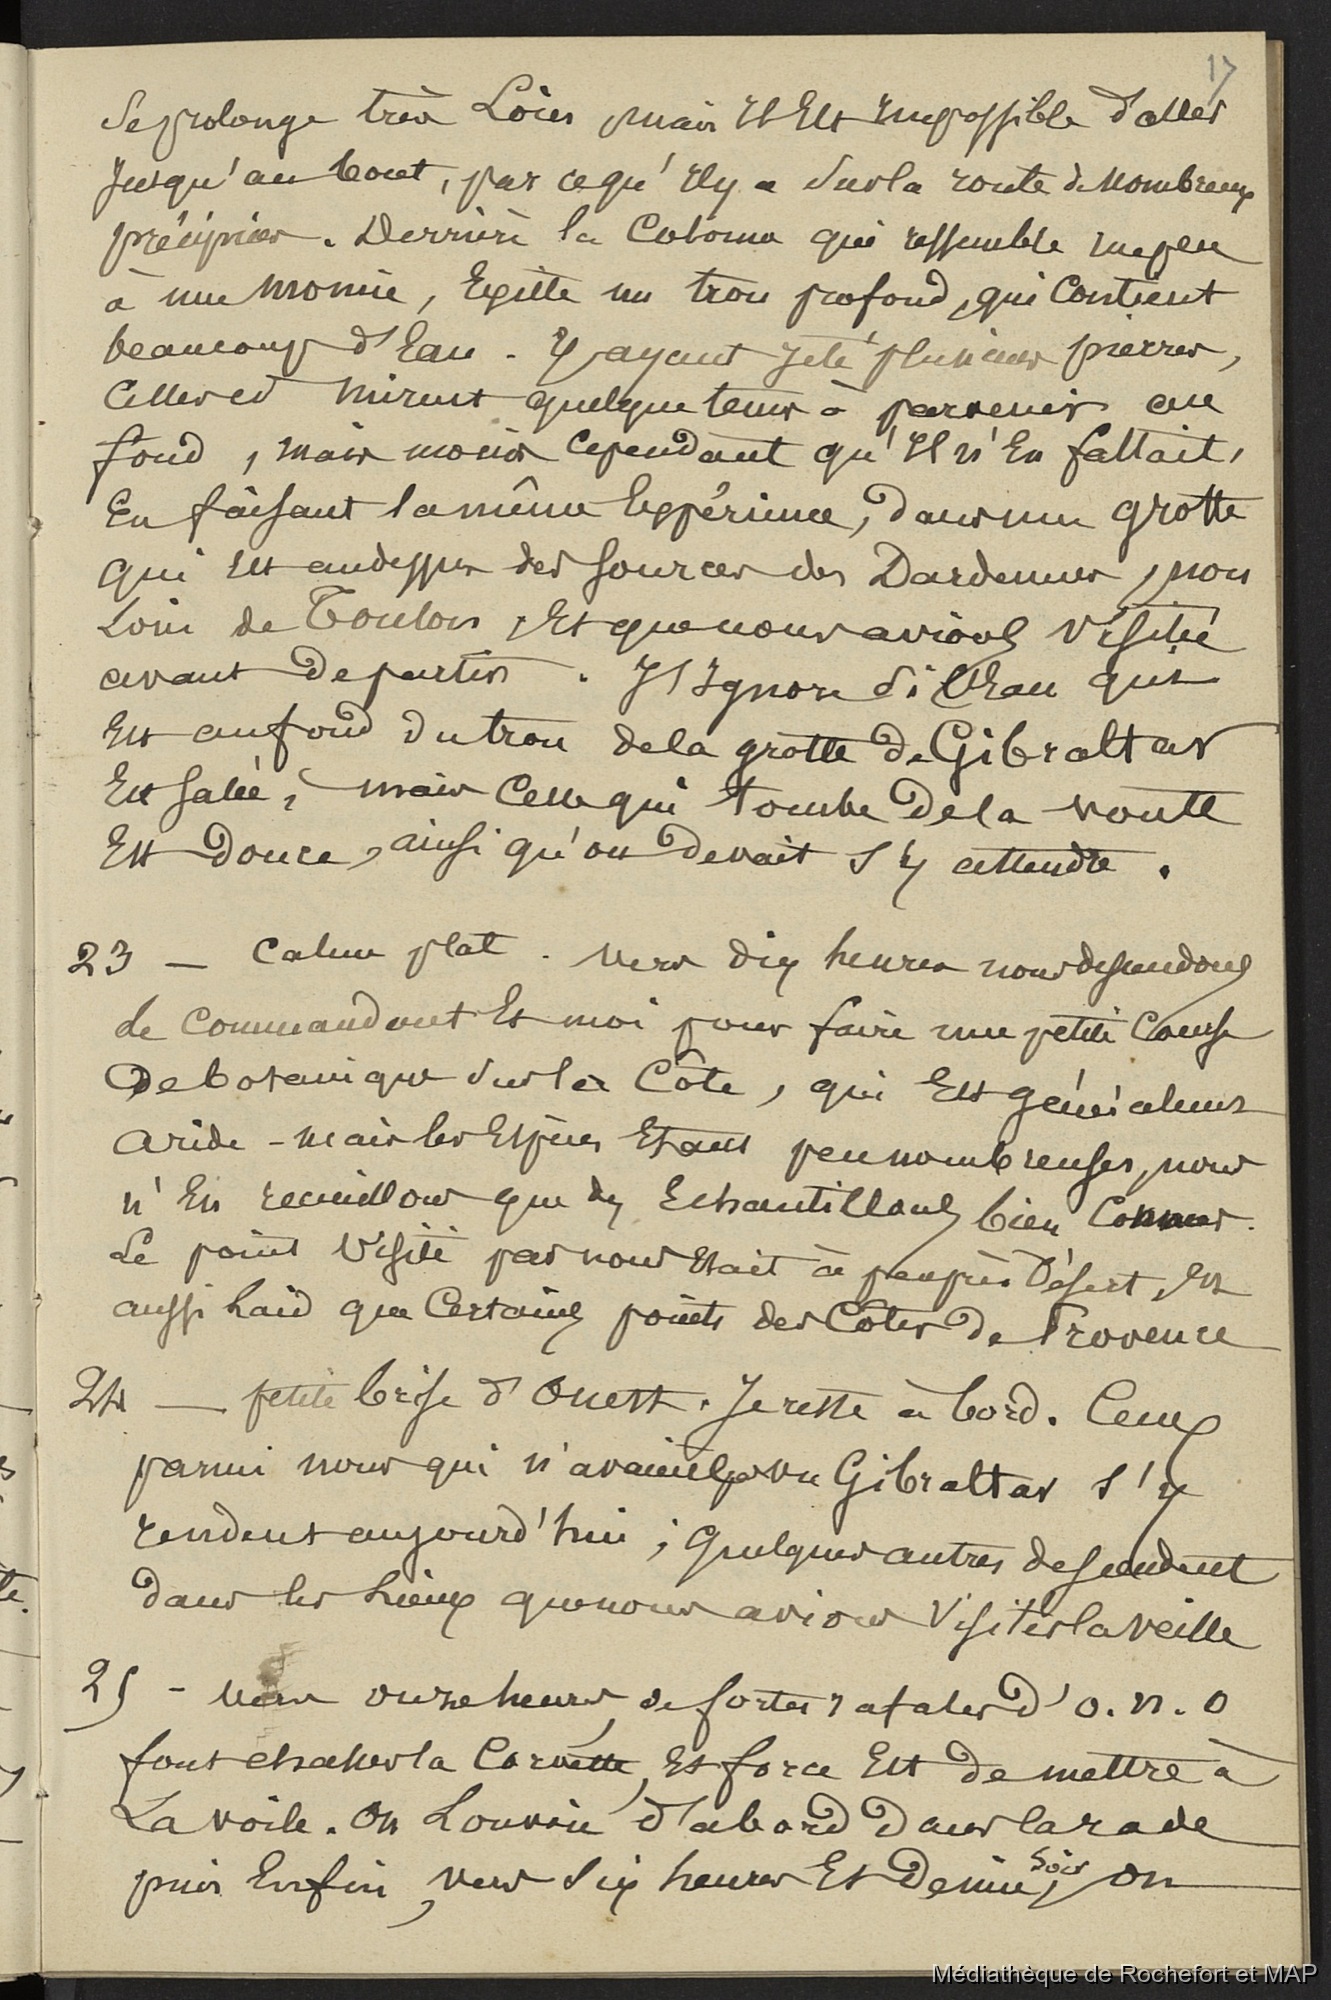 17
se prolonge très Loin mais Il Est Impossible d'aller
Jusqu'au bout, par ce qu'Il y a sur la route de Nombreux
précipices. Derrière la Colonne qui ressemble un peu
à une momie, Existe un trou profond, qui Contient
beaucoup d'Eau. Y ayant Jeté plusieurs pierres,
Celles ci mirent quelque tems à parvenir au
fond, mais moins cependant qu'Il n'En fallait,
En faisant la même Expérience, dans une grotte
qui Est au dessus des Sources des Dardennes, non
Loin de Toulon, Et que nous avions Visitée
avant de partir. J'Ignore si l'Eau qui
Est au fond du trou de la grotte de Gibraltar
Est Salée, mais Celle qui tombe de la voute
Est Douce, ainsi qu'on devait s'y attendre.
23 — Calme plat. Vers dix heures nous descendons
le Commandant Et moi pour faire une petite Course
De botanique sur la Côte, qui Est généralement
aride - mais les Espèces Etant peu nombreuses, nous
n'En recueillons que des Echantillons bien Connus.
Le point Visité par nous Etait à peu près Désert, Et
aussi Laid que Certains points des Côtes de Provence
24 — petite brise d'Ouest. Je reste à bord. Ceux
parmi nous qui n'avaient pas vu Gibraltar s'y
rendent aujourd'hui ; Quelques autres descendent
dans les Lieux que nous avions Visités la Veille
25 - Vers onze heures, de fortes rafales d'O.N.O
font chasser la Corvette, Et force Est de mettre à
La voile. On Louvoie d'abord Dans la rade
puis Enfin, vers six heures Et Demie, soir on
Médiathèque de Rochefort et MAP